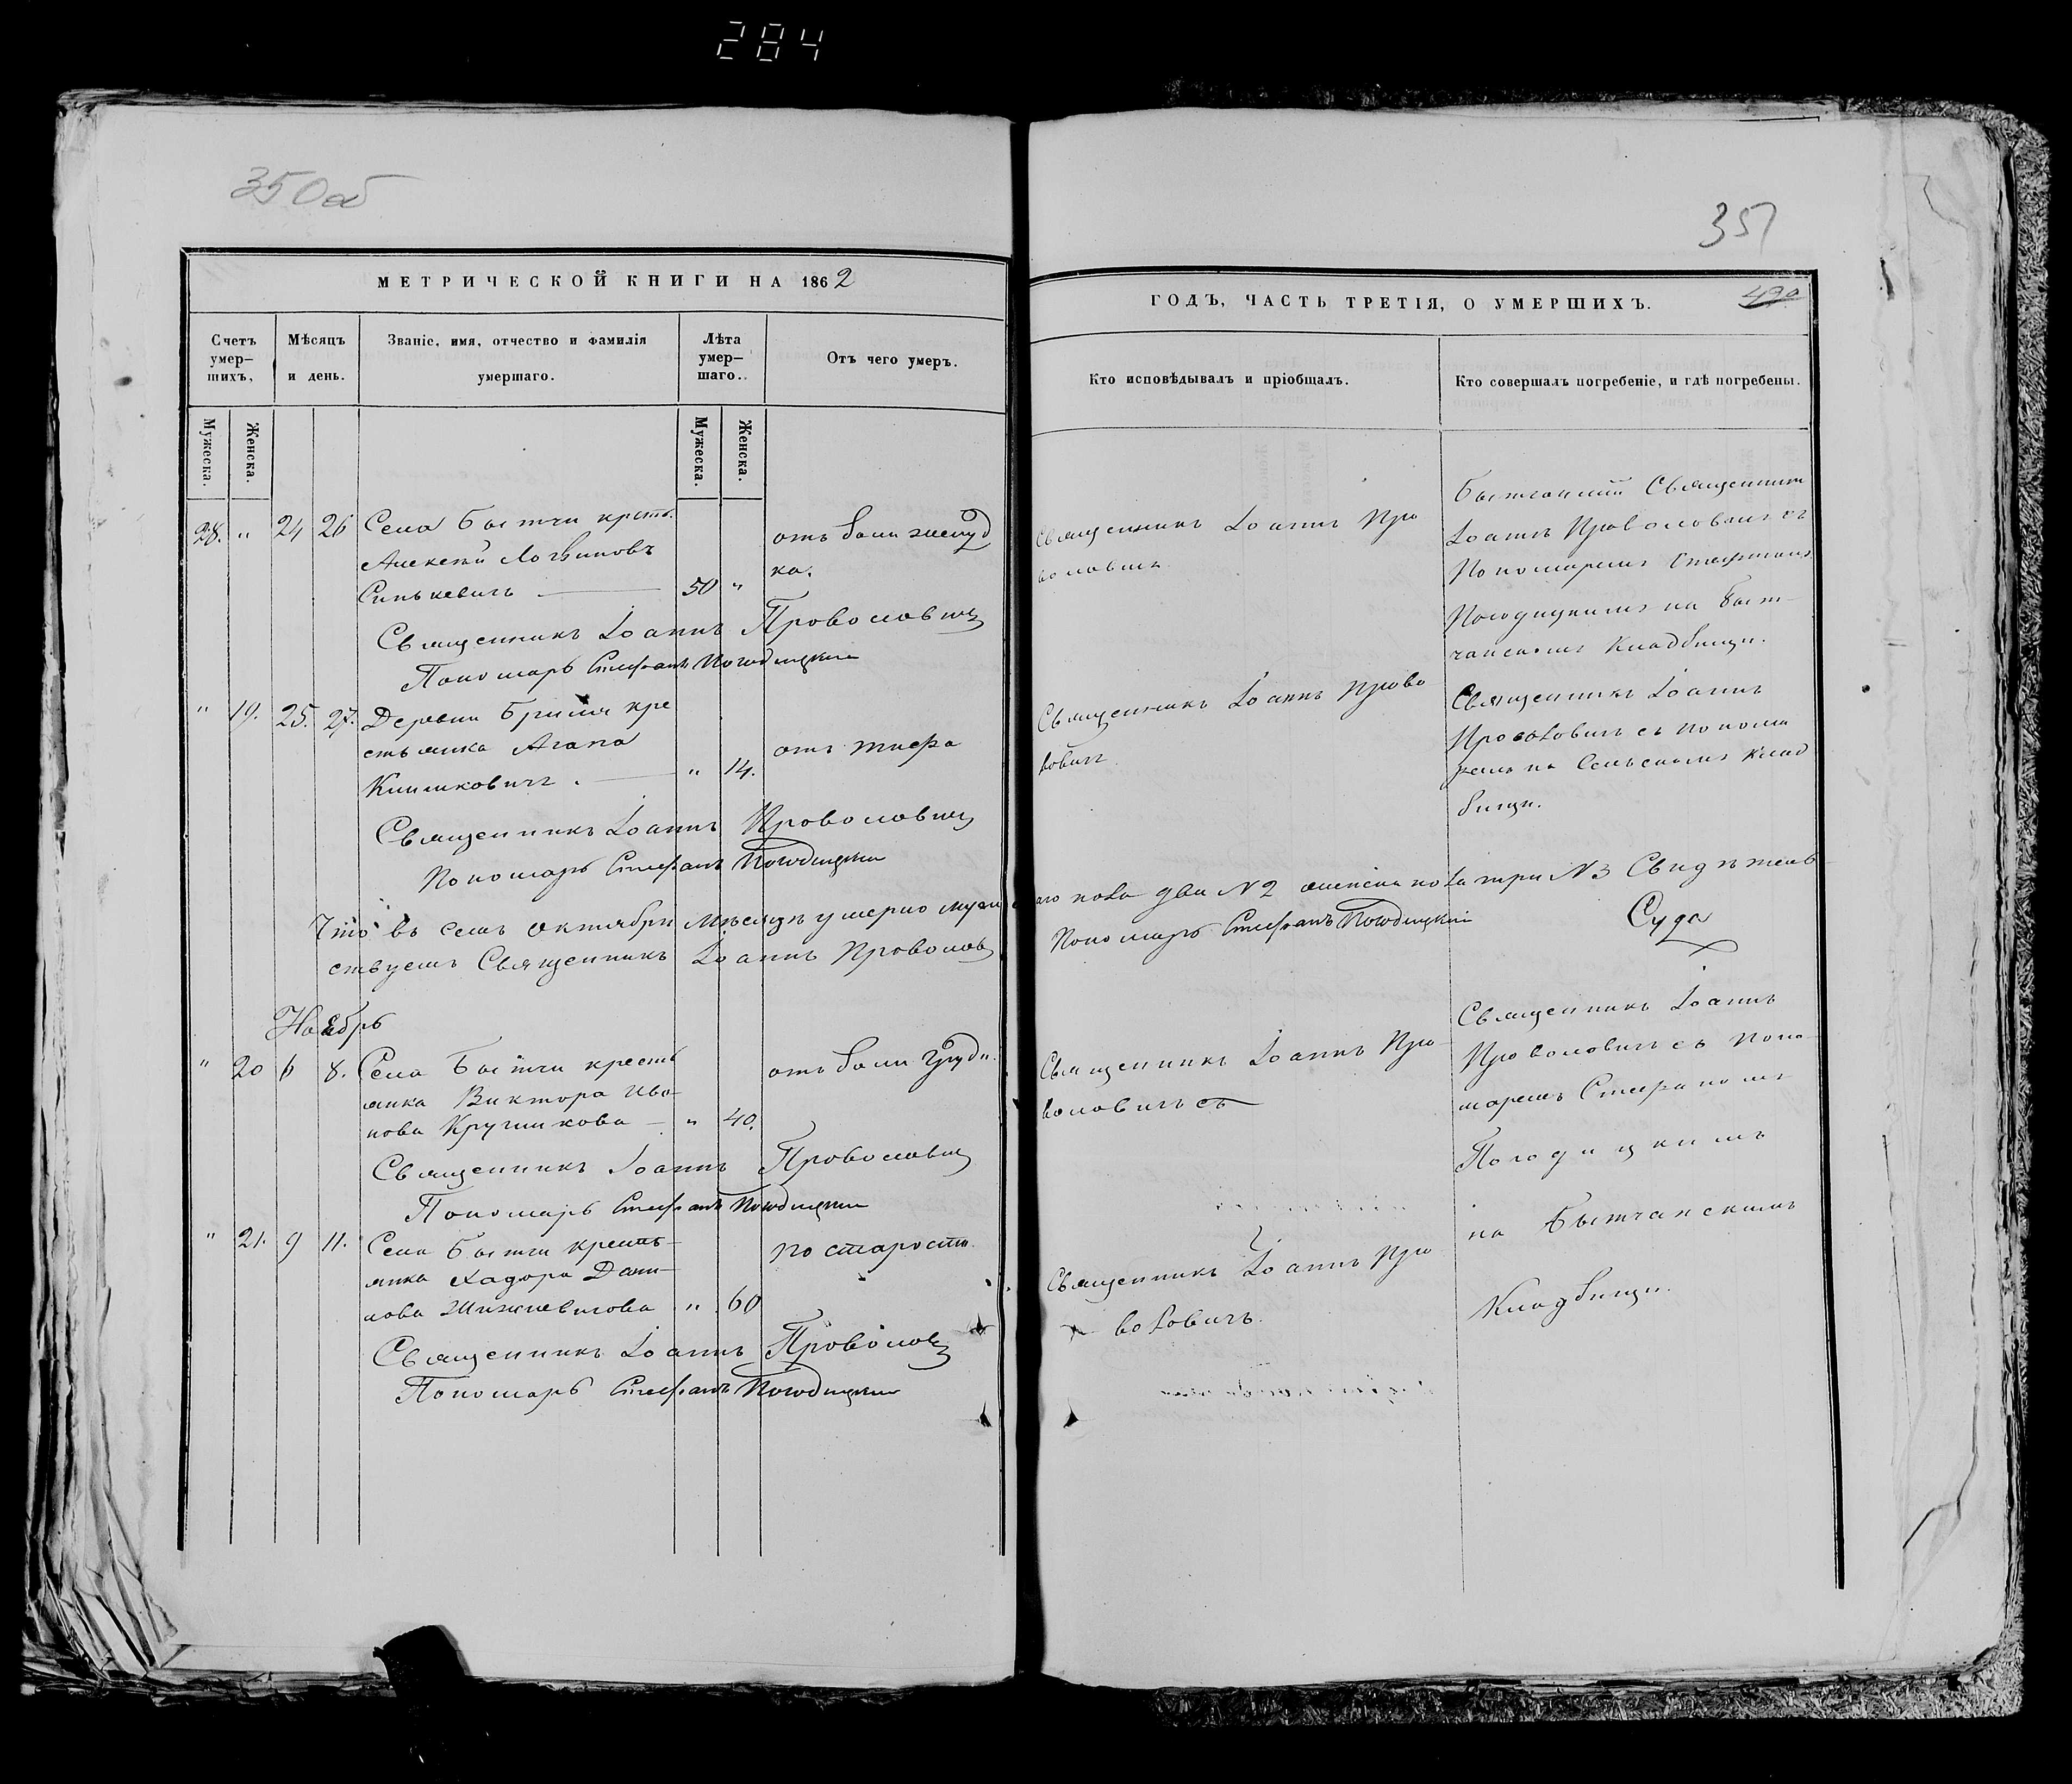 284
350об
351
МЕТРИЧЕСКОЙ КНИГИ НА 1862
ГОДЪ, ЧАСТЬ ТРЕТІЯ, О УМЕРШИХЪ.
490
Счетъ умер-
шихъ,
Мѣсяцъ
и день.
Званіе, имя, отчество и фамилія
умершаго.
Лѣта
умер-
шаго.
Отъ чего умеръ.
Кто исповѣдывалъ и пріобщалъ.
Кто совершалъ погребеніе, и гдѣ погребены.
Мужеска.
Женска.
Мужеска.
Женска.
28. " 24 26 Села Бытчи крест.
Алексѣй Логвиновъ
Синькевичъ — 50 "
отъ боли желуд
ка.
Священникъ Іоаннъ Про
воловичъ
Бытчанскій Священник
Іоаннъ Проволовичъ съ
Пономаремъ Стефаномъ
Погодицкимъ на Быт-
чанскомъ Кладбищи.
Священникъ Іоаннъ Проволовичъ
Пономарь Стефанъ Погодицкій
" 19. 25. 27. Деревни Брили кре
стьянка Агапа
Климковичъ. — " 14.
отъ тифа
Священникъ Іоаннъ Прово
ловичъ
Священникъ Іоаннъ
Проволовичъ съ понома
ремъ на Сельскомъ Клад
бищи.
Священникъ Іоаннъ Проволовичъ
Пономарь Стефанъ Погодицкій
Что въ семъ Октябри мѣсяцѣ умерло мужескаго пола два №2 женска пола три №3 Свидѣтель-
ствуемъ Священникъ Іоаннъ Проволов Пономарь Стефанъ Погодицкій
Суда
Ноябрь
" 20 6 8. Села Бытчи кресть
янка Виктора Ива
нова — " 40.
отъ боли Груди.
Священникъ Іоаннъ Про-
воловичъ съ
Священникъ Іоаннъ
Проволовичъ съ Поно-
маремъ Стефаномъ
Погодицкимъ
на Бытчанскимъ
Кладбищи.
Священникъ Іоаннъ Проволович
Пономарь Стефанъ Погодицкій
" 21. 9 11. Села Бытчи кресть-
янка Хадора Дани-
лова " 60
по старости.
Священникъ Іоаннъ Про
воловичъ.
Священникъ Іоаннъ Проволов
Пономарь Стефанъ Погодицкій